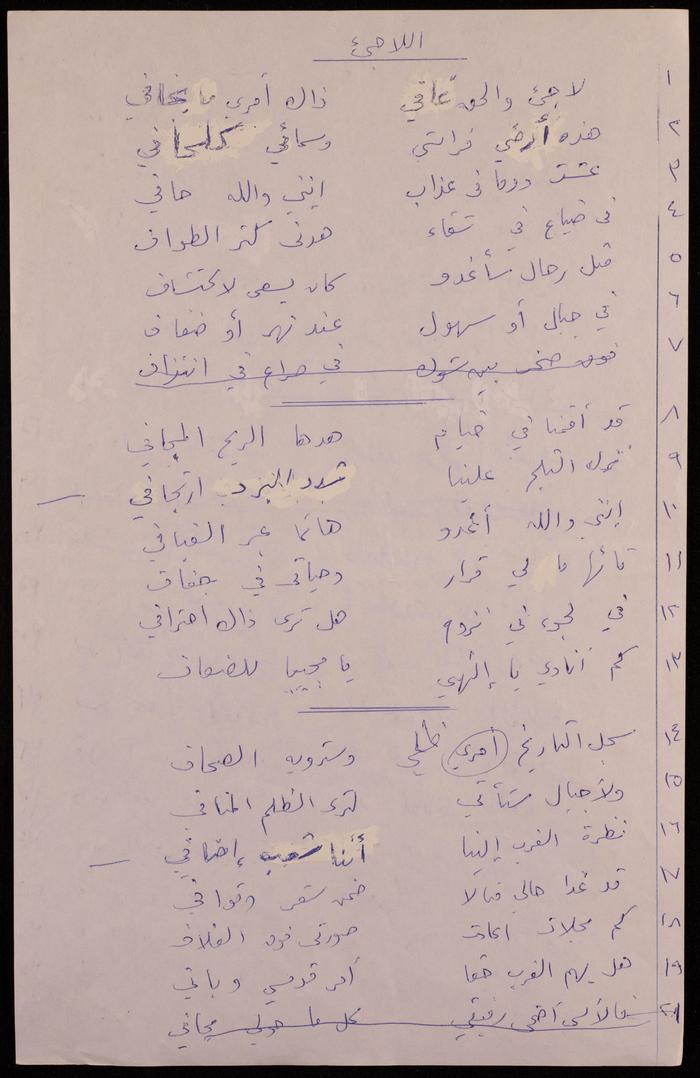 اللاجئ
١ لاجئ والحق عافي ذاك أمري ما يخافي
٢ هذه أرضي فراشي وسمائي كلحافي
٣ عشت دوما في عذاب إنني والله حافي
٤ في ضياع في شقاء هدني كثر الطواف
٥ قبل رحال سأغدو كان يسعى لاكتشاف
٦ في جبال أو سهول عند نهر أو ضفاف
٧ فوق صخر بين شوك في صراع في انتزاف
٨ قد أقمنا في خيام هدها الريح المجافي
٩ نزل الثلج علينا البرد ارتجافي
١٠ إنني والله أغدو هائما عبر الفيافي
١١ تائها ما لي قرار وحياتي في جفاف
١٢ في لجوء في نزوح هل ترى ذاك اعترافي
١٣ كم أنادي يا إلهي يا مجيبا للضعاف
١٤ سجل التاريخ أمري ظلمي وسترويه الصحاف
١٥ ولأجيال ستأتي لترى الظلم المنافي
١٦ نظرة الغرب إلينا أننا شعب إضافي
١٧ قد غدا حالي مثالا ضمن شعر وقوافي
١٨ كم مجلات أعادت صورتي فوق الغلاف
١٩ هل يهم الغرب حقا أمر قدسي ويافي
٢٠ فالأسى أضحى رفيقي كل ما حولي مجافي